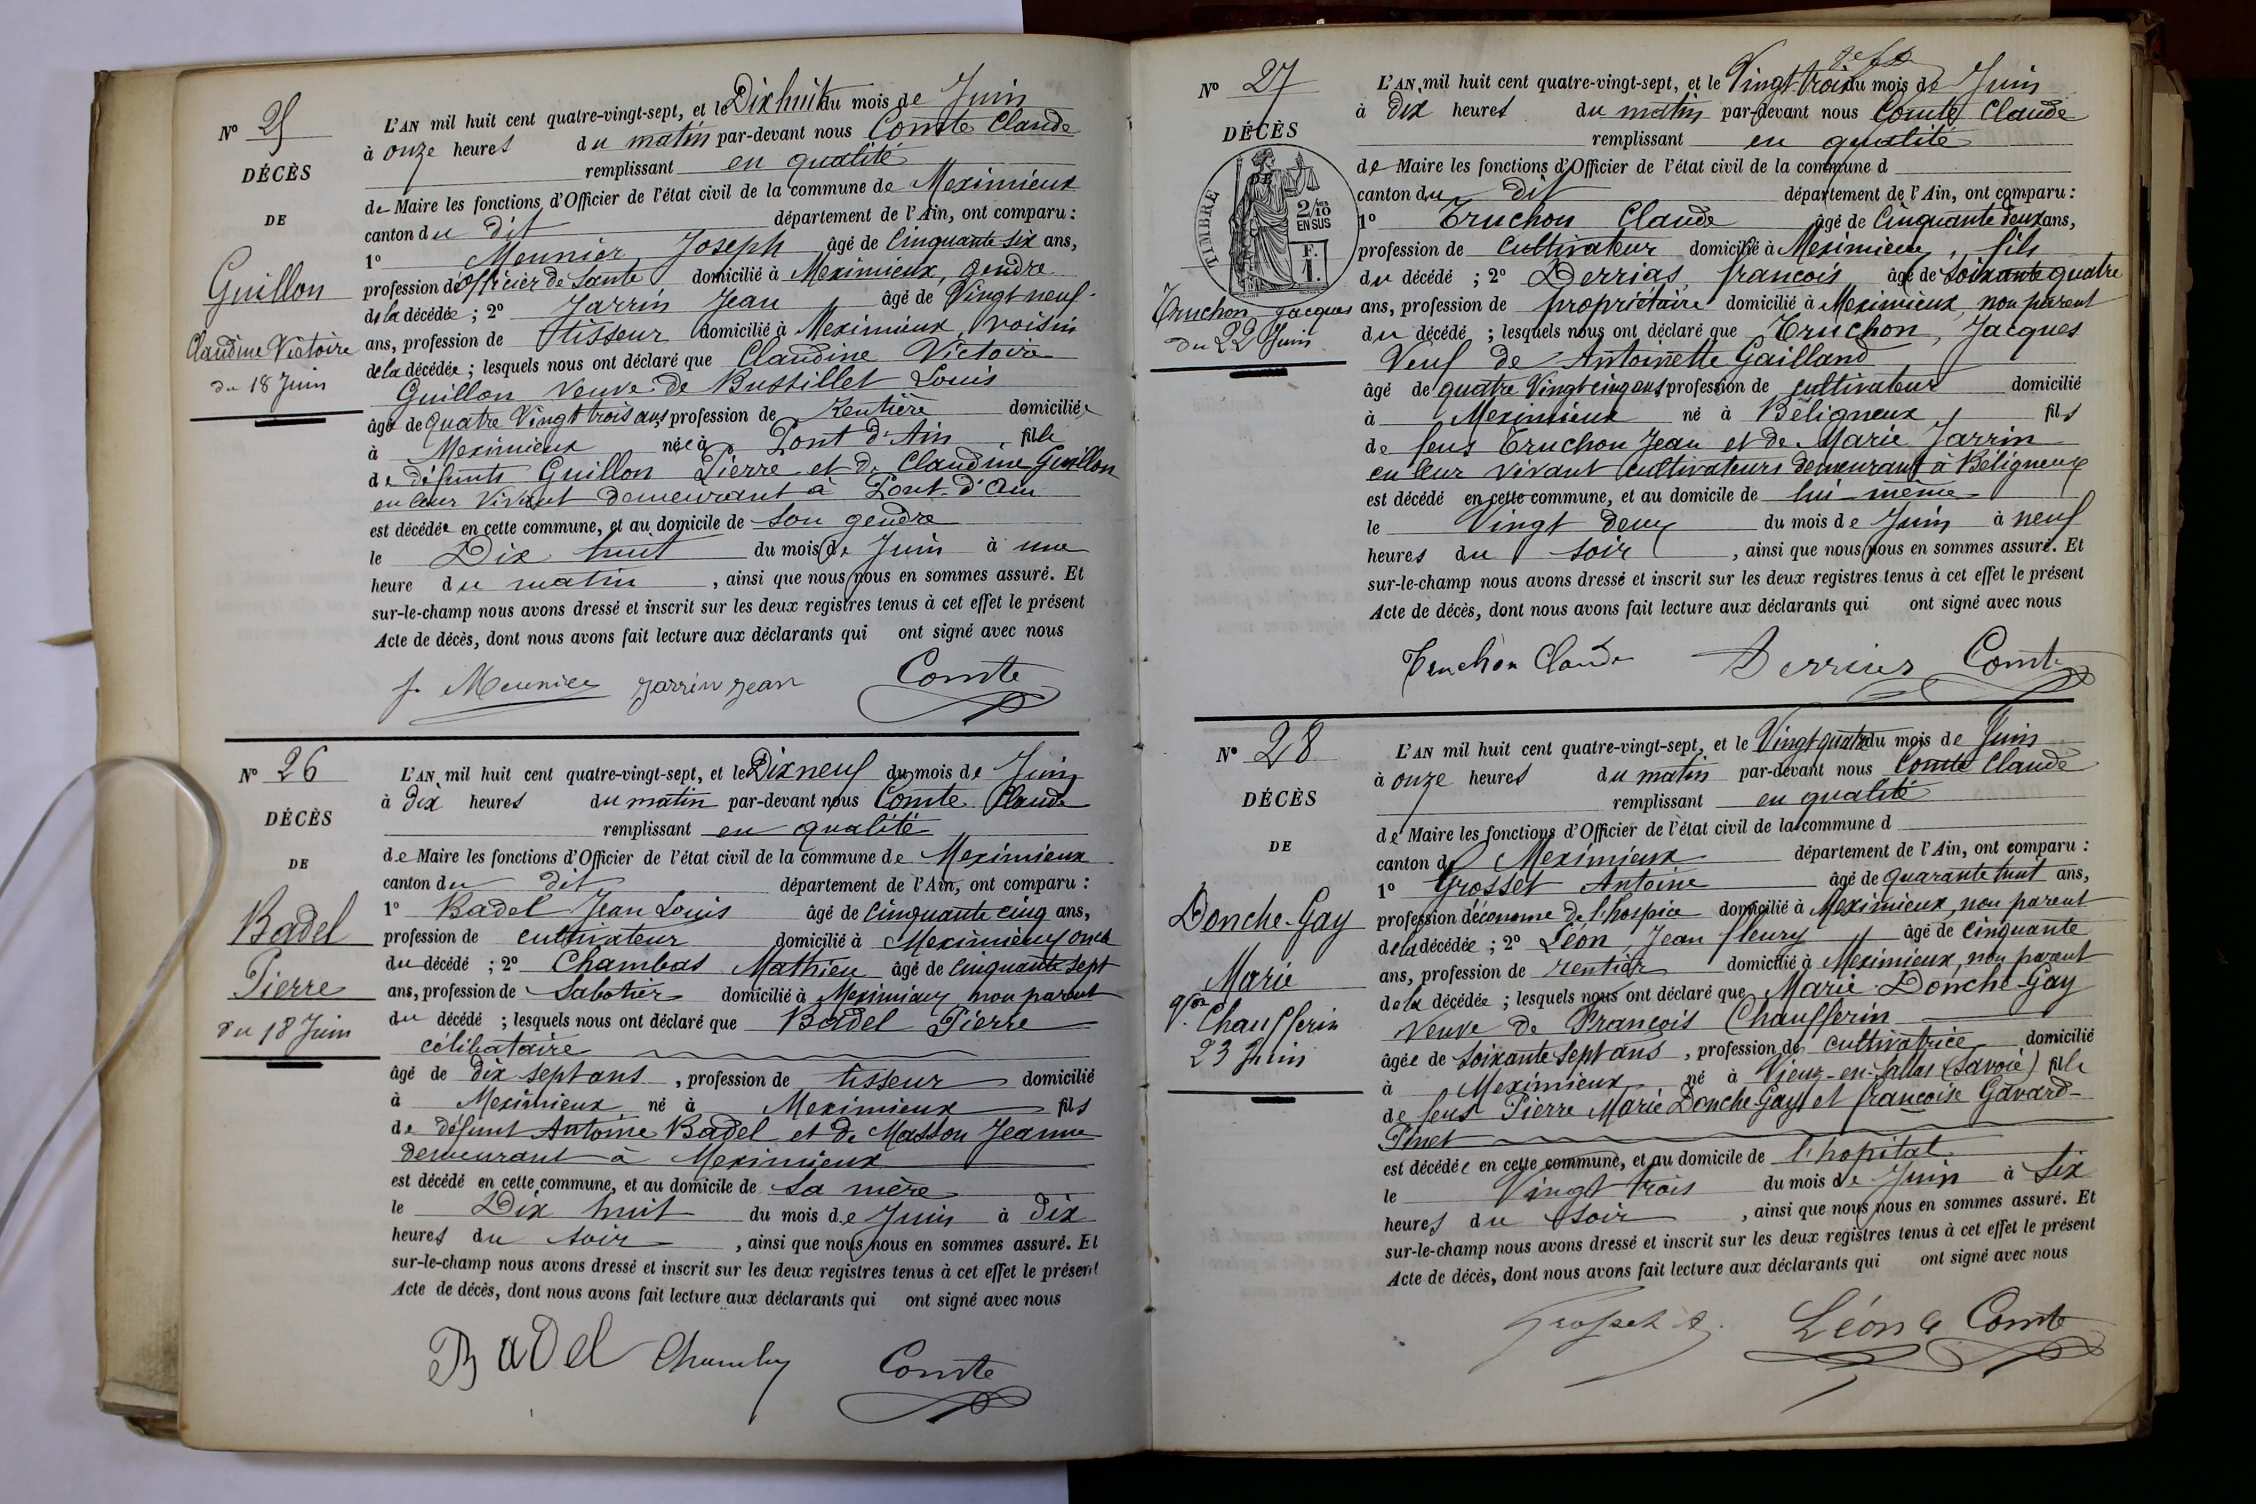 N° 25
DÉCÈS
DE
Guillon
Claudine Victoire
du 18 Juin
L'AN mil huit cent quatre-vingt-sept, et le Dix huit du mois de Juin
à onze heures du matin par-devant nous Comte Claude
remplissant en qualité
de Maire les fonctions d'Officier de l'état civil de la commune de Meximieux
canton du dit département de l'Ain, ont comparu :
1° Meunier Joseph âgé de Cinquante six ans,
profession d'officier de Santé domicilié à Meximieux, gendre
de la décédée ; 2° Jarrin Jean âgé de Vingt neuf
ans, profession de tisseur domicilié à Meximieux, voisin
de la décédée ; lesquels nous ont déclaré que Claudine Victoire
Guillon veuve de Bussillet Louis
âgé de quatre Vingt trois ans profession de rentière domiciliée
à Meximieux née à Pont d'Ain, fille
de défunts Guillon Pierre et de Claudine Guillon
en leur vivant demeurant à Pont-d'Ain
est décédée en cette commune, et au domicile de son gendre
le Dix huit du mois de Juin à une
heure du matin, ainsi que nous nous en sommes assuré. Et
sur-le-champ nous avons dressé et inscrit sur les deux registres tenus à cet effet le présent
Acte de décès, dont nous avons fait lecture aux déclarants qui ont signé avec nous
J. Meunier Jarrin Jean Comte
N° 26
DÉCÈS
DE
Badel
Pierre
du 18 Juin
L'AN mil huit cent quatre-vingt-sept, et le Dix neuf du mois de Juin
à dix heures du matin par-devant nous Comte Claude
remplissant en qualité
de Maire les fonctions d'Officier de l'état civil de la commune de Meximieux
canton du dit département de l'Ain, ont comparu :
1° Badel Jean Louis âgé de Cinquante cinq ans,
profession de cultivateur domicilié à Meximieux oncle
du décédé ; 2° Chambas Mathieu âgé de Cinquante sept
ans, profession de Sabotier domicilié à Meximieux, non parent
du décédé ; lesquels nous ont déclaré que Badel Pierre
célibataire
âgé de dix sept ans, profession de tisseur domicilié
à Meximieux né à Meximieux fils
de défunt Antoine Badel et de Masson Jeanne
demeurant à Meximieux
est décédé en cette commune, et au domicile de sa mère
le Dix huit du mois de Juin à dix
heures du soir, ainsi que nous nous en sommes assuré. Et
sur-le-champ nous avons dressé et inscrit sur les deux registres tenus à cet effet le présent
Acte de décès, dont nous avons fait lecture aux déclarants qui ont signé avec nous
Badel Comte
N° 27
DÉCÈS
DE
TIMBRE
2/10
EN SUS
F.
1.
Truchon Jacques
du 22 Juin
L'AN mil huit cent quatre-vingt-sept, et le Vingt trois du mois de Juin
à dix heures du matin par-devant nous Comte Claude
remplissant en qualité
de Maire les fonctions d'Officier de l'état civil de la commune d
canton du dit département de l'Ain, ont comparu :
1° Truchon Claude âgé de Cinquante deux ans,
profession de cultivateur domicilié à Meximieux, fils
du décédé ; 2° Derrias françois âgé de Soixante quatre
ans, profession de propriétaire domicilié à Meximieux, non parent
du décédé ; lesquels nous ont déclaré que Truchon, Jacques
Veuf de Antoinette Gailland
âgé de quatre Vingt cinq ans, profession de cultivateur domicilié
à Meximieux né à Béligneux, fils
de feus Truchon Jean et de Marie Jarrin
en leur vivant cultivateurs demeurant à Béligneux
est décédé en cette commune, et au domicile de lui même
le Vingt deux du mois de Juin à neuf
heures du soir, ainsi que nous nous en sommes assuré. Et
sur-le-champ nous avons dressé et inscrit sur les deux registres tenus à cet effet le présent
Acte de décès, dont nous avons fait lecture aux déclarants qui ont signé avec nous
Truchon Claude Derrias Comte
N° 28
DÉCÈS
DE
Donche-Gay
Marie
Vve Chaufferin
23 Juin
L'AN mil huit cent quatre-vingt-sept, et le Vingt quatre du mois de Juin
à onze heures du matin par-devant nous Comte Claude
remplissant en qualité
de Maire les fonctions d'Officier de l'état civil de la commune d
canton de Meximieux département de l'Ain, ont comparu :
1° Grosset Antoine âgé de quarante huit ans,
profession d'économe de l'hospice domicilié à Meximieux, non parent
de la décédée ; 2° Léon, Jean fleury âgé de cinquante
ans, profession de rentier domicilié à Meximieux, non parent
de la décédée ; lesquels nous ont déclaré que Marie Donche-Gay
veuve de François Chaufferin
âgée de soixante sept ans, profession de cultivatrice domicilié
à Meximieux né à Vieuz-en-Sallaz (Savoie) fille
de feus Pierre Marie Donche-Gay et françoise Gavard-
Pinet
est décédée en cette commune, et au domicile de l'hopital
le Vingt trois du mois de Juin à Six
heures du soir, ainsi que nous nous en sommes assuré. Et
sur-le-champ nous avons dressé et inscrit sur les deux registres tenus à cet effet le présent
Acte de décès, dont nous avons fait lecture aux déclarants qui ont signé avec nous
Grosset A. Léon Comte